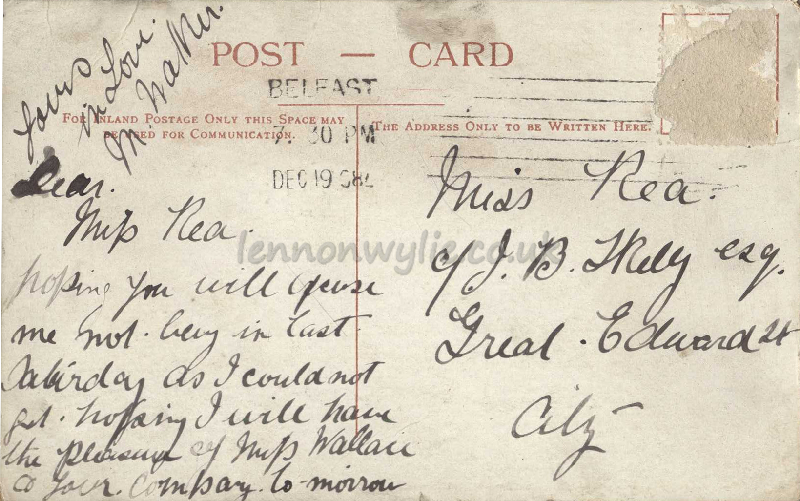 POST — CARD
BELFAST
7. 30 PM
DEC 19
FOR INLAND POSTAGE ONLY THIS SPACE MAY
BE USED FOR COMMUNICATION.
THE ADDRESS ONLY TO BE WRITTEN HERE.
Yours
in Love
M Walker.
Dear.
Miss Rea.
hopsing you will
me not. being in last
Saturday as I could not
get. hopsing I will have
the pleasure of Miss Wallace
& your. Company. to-morrow
Miss Rea.
c/ J. B. Skely esq.
Great. Edward St
City
lennonwylie.co.uk